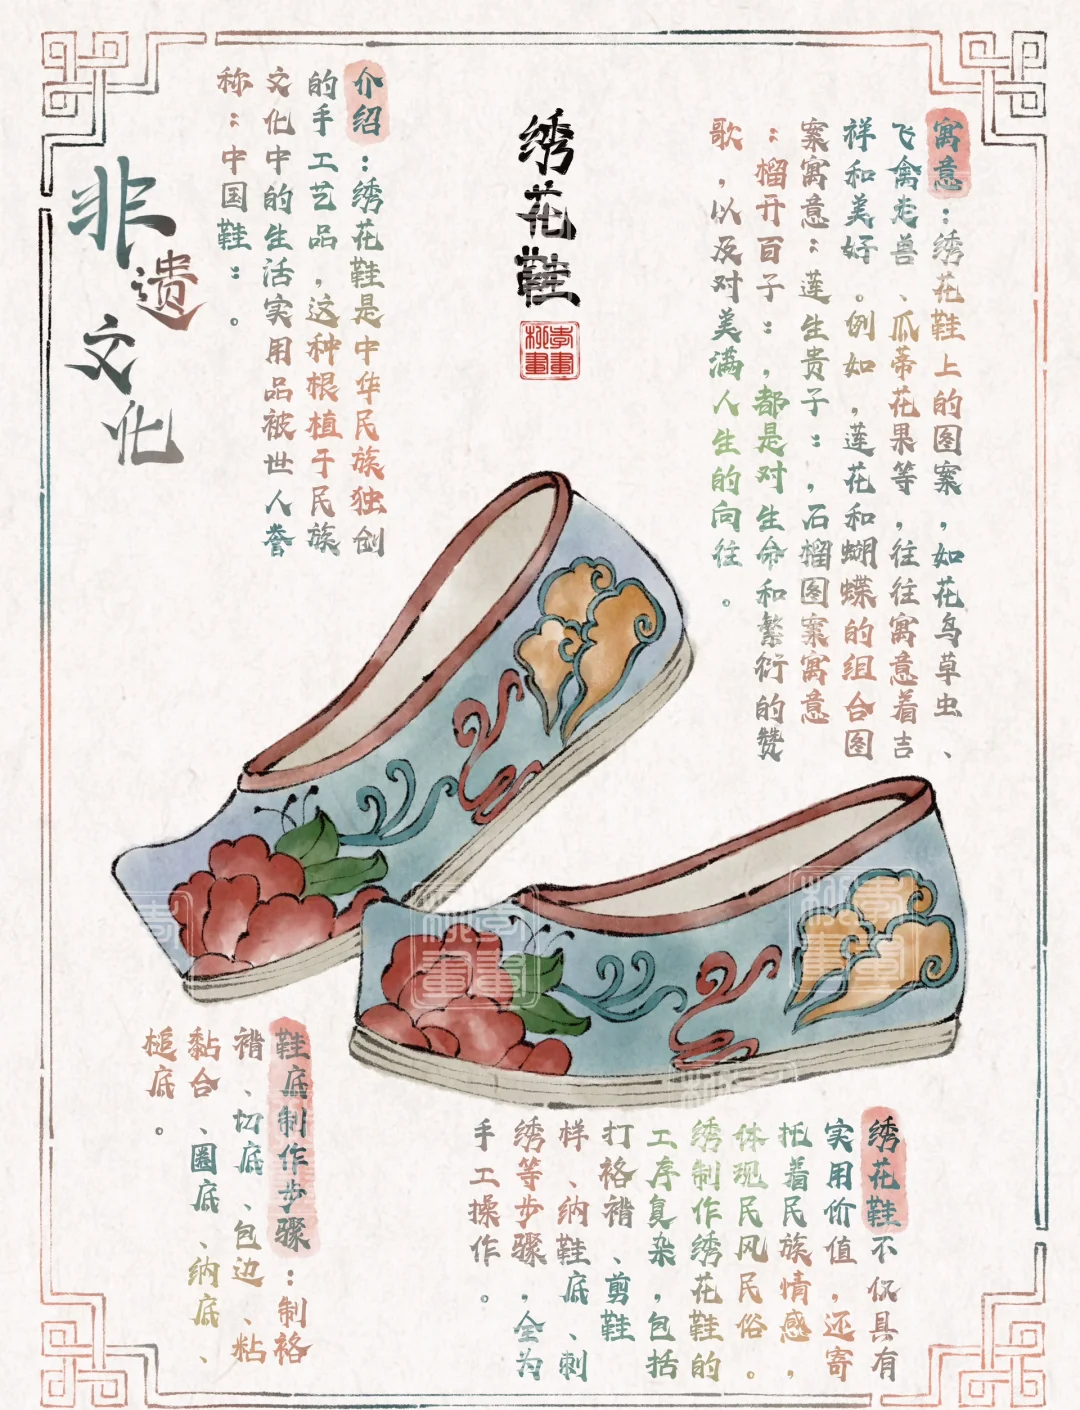 绣花鞋
寓意：绣花鞋上的图案，如花鸟草虫、
飞禽走兽、瓜蒂花果等，往往寓意着吉
祥和美好。例如，莲花和蝴蝶的组合图
案寓意：莲生贵子：，石榴图案寓意
：榴开百子：，都是对生命和繁衍的赞
歌，以及对美满人生的向往。
介绍：绣花鞋是中华民族独创
的手工艺品，这种根植于民族
文化中的生活实用品被世人誉
称：中国鞋：。
非遗文化
绣花鞋不仅具有
实用价值，还寄
托着民族情感，
体现民风民俗。
绣制作绣花鞋的
工序复杂，包括
打袼褙、剪鞋
样、纳鞋底、刺
绣等步骤，全为
手工操作。
鞋底制作步骤：制袼
褙、切底、包边、粘
黏合、圈底、纳底、
槌底。